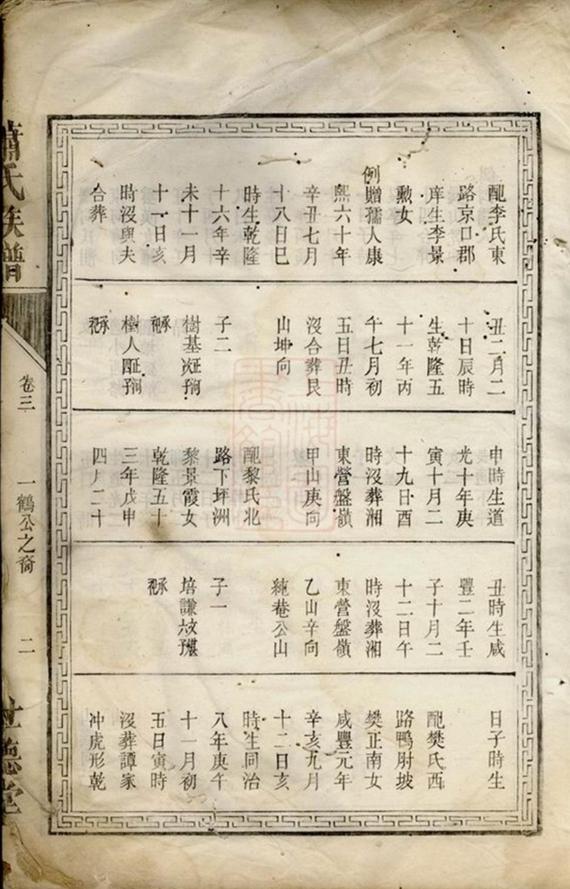 配李氏東
路京口郡
庠生李景
勲女
例贈孺人康
熙六十年
辛丑七月
十八日巳
時生乾隆
十六年辛
未十一月
十一日亥
時沒與夫
合葬
丑二月二
十日辰時
生乾隆五
十一年丙
午七月初
五日丑時
沒合葬艮
山坤向
子二
樹基
樹人
申時生道
光十年庚
寅十月二
十九日酉
時沒葬湘
東營盤嶺
甲山庚向
配黎氏北
路下坪洲
黎景霞女
乾隆五十
三年戊申
四月二十
丑時生咸
豐二年壬
子十月二
十二日午
時沒葬湘
東營盤嶺
乙山辛向
純菴公山
子一
培謙
日子時生
配樊氏西
路鴨尉坡
樊正南女
咸豐元年
辛亥九月
十二日亥
時生同治
八年庚午
十一月初
五日寅時
沒葬譚家
冲虎形乾
蕭氏族譜
卷三
一鶴公之裔
二
德堂